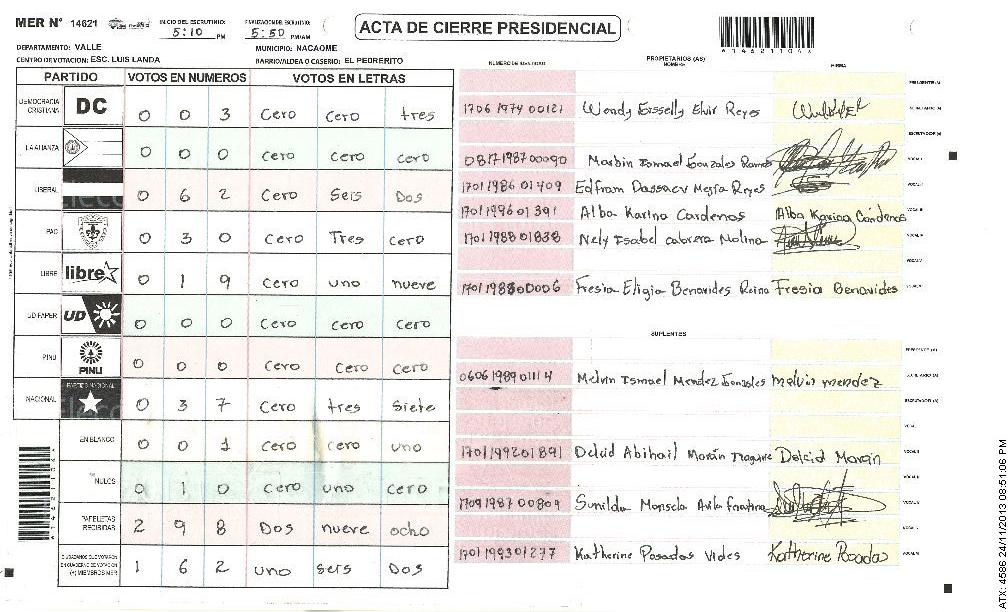 MER N° 14621
INICIO DEL ESCRUTINIO: 5:10 PM
FINALIZACION DEL ESCRUTINIO: 5:50 PM/AM
ACTA DE CIERRE PRESIDENCIAL
DEPARTAMENTO: VALLE
MUNICIPIO: NACAOME
CENTRO DE VOTACION: ESC. LUIS LANDA
BARRIO/ALDEA O CASERIO: EL PEDRERITO
PARTIDO VOTOS EN NUMEROS VOTOS EN LETRAS
DEMOCRACIA CRISTIANA DC 0 0 3 Cero Cero tres
LA ALIANZA 0 0 0 Cero Cero cero
LIBERAL 0 6 2 Cero Seis Dos
PAC 0 3 0 Cero Tres cero
LIBRE libre 0 1 9 Cero uno nueve
UD FAPER UD 0 0 0 Cero Cero Cero
PINU PINU 0 0 0 Cero Cero Cero
NACIONAL PARTIDO NACIONAL 0 3 7 Cero tres Siete
EN BLANCO 0 0 1 Cero cero uno
NULOS 0 1 0 Cero uno cero
PAPELETAS RECIBIDAS 2 9 8 Dos nueve ocho
CIUDADANOS QUE VOTARON EN CUADERNO DE VOTACION (+) MIEMBROS MER 1 6 2 uno seis Dos
NUMERO DE IDENTIDAD
PROPIETARIOS (AS)
NOMBRE
FIRMA
1706 1974 00121 Wendy Eisselly Elvir Reyes
0817 1987 00090 Marbin Ismael Gonzales Ramos
1701 1986 01409 Edfram Dassaev Mejia Reyes
1701 1996 01391 Alba Karina Cardenas Alba Karina Cárdenas
1701 1988 01838 Nely Isabel Cabrera Molina
1701 1988 00006 Fresia Eligia Benavides Reina Fresia Benavides
SUPLENTES
0606 1989 01114 Melvin Ismael Mendez Gonzales melvin mendez
1701 1992 01891 Delcid Abihail Morán Delcid Morán
1709 1987 00809 Sunilda Avila
1701 1993 01277 Katherine Posadas Vides Katherine Posadas
ATX: 4586 24/11/2013 08:51:06 PM